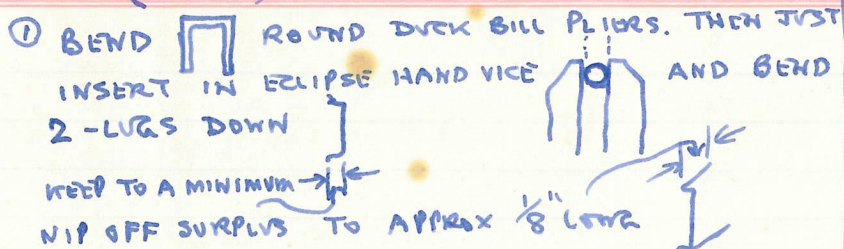 ① BEND ROUND DUCK BILL PLIERS. THEN JUST
INSERT IN ECLIPSE HAND VICE AND BEND
2-LUGS DOWN
KEEP TO A MINIMUM
NIP OFF SURPLUS TO APPROX 1/8" LONG